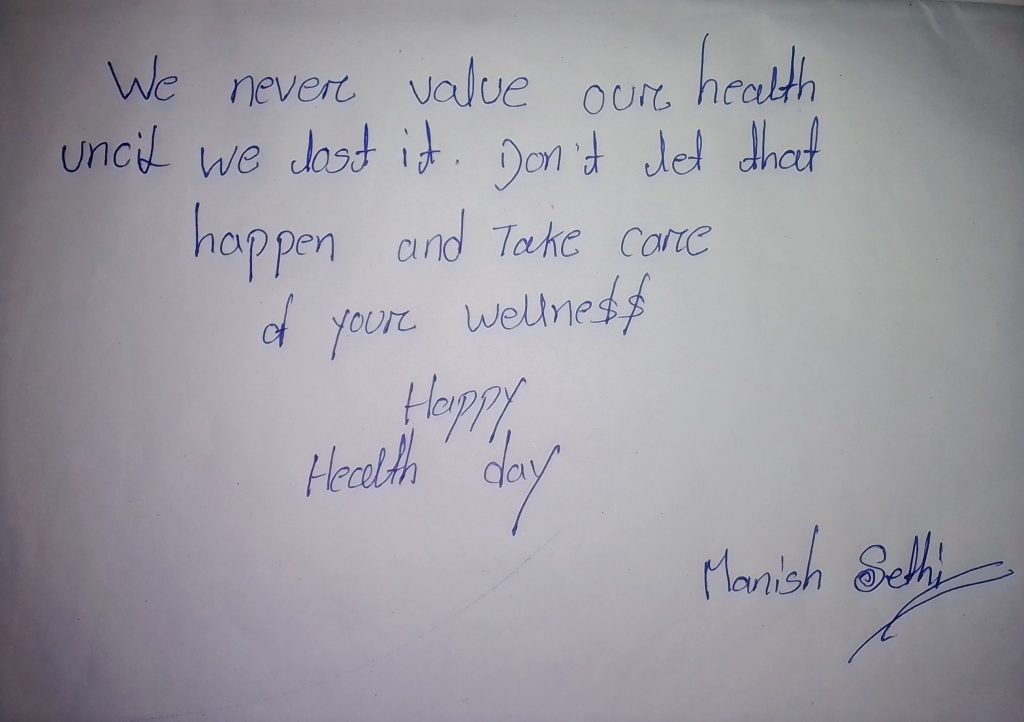 We never value our health
uncil we lost it. Don't let that
happen and Take care
of your wellne$$
Happy
Health day
Manish Sethi